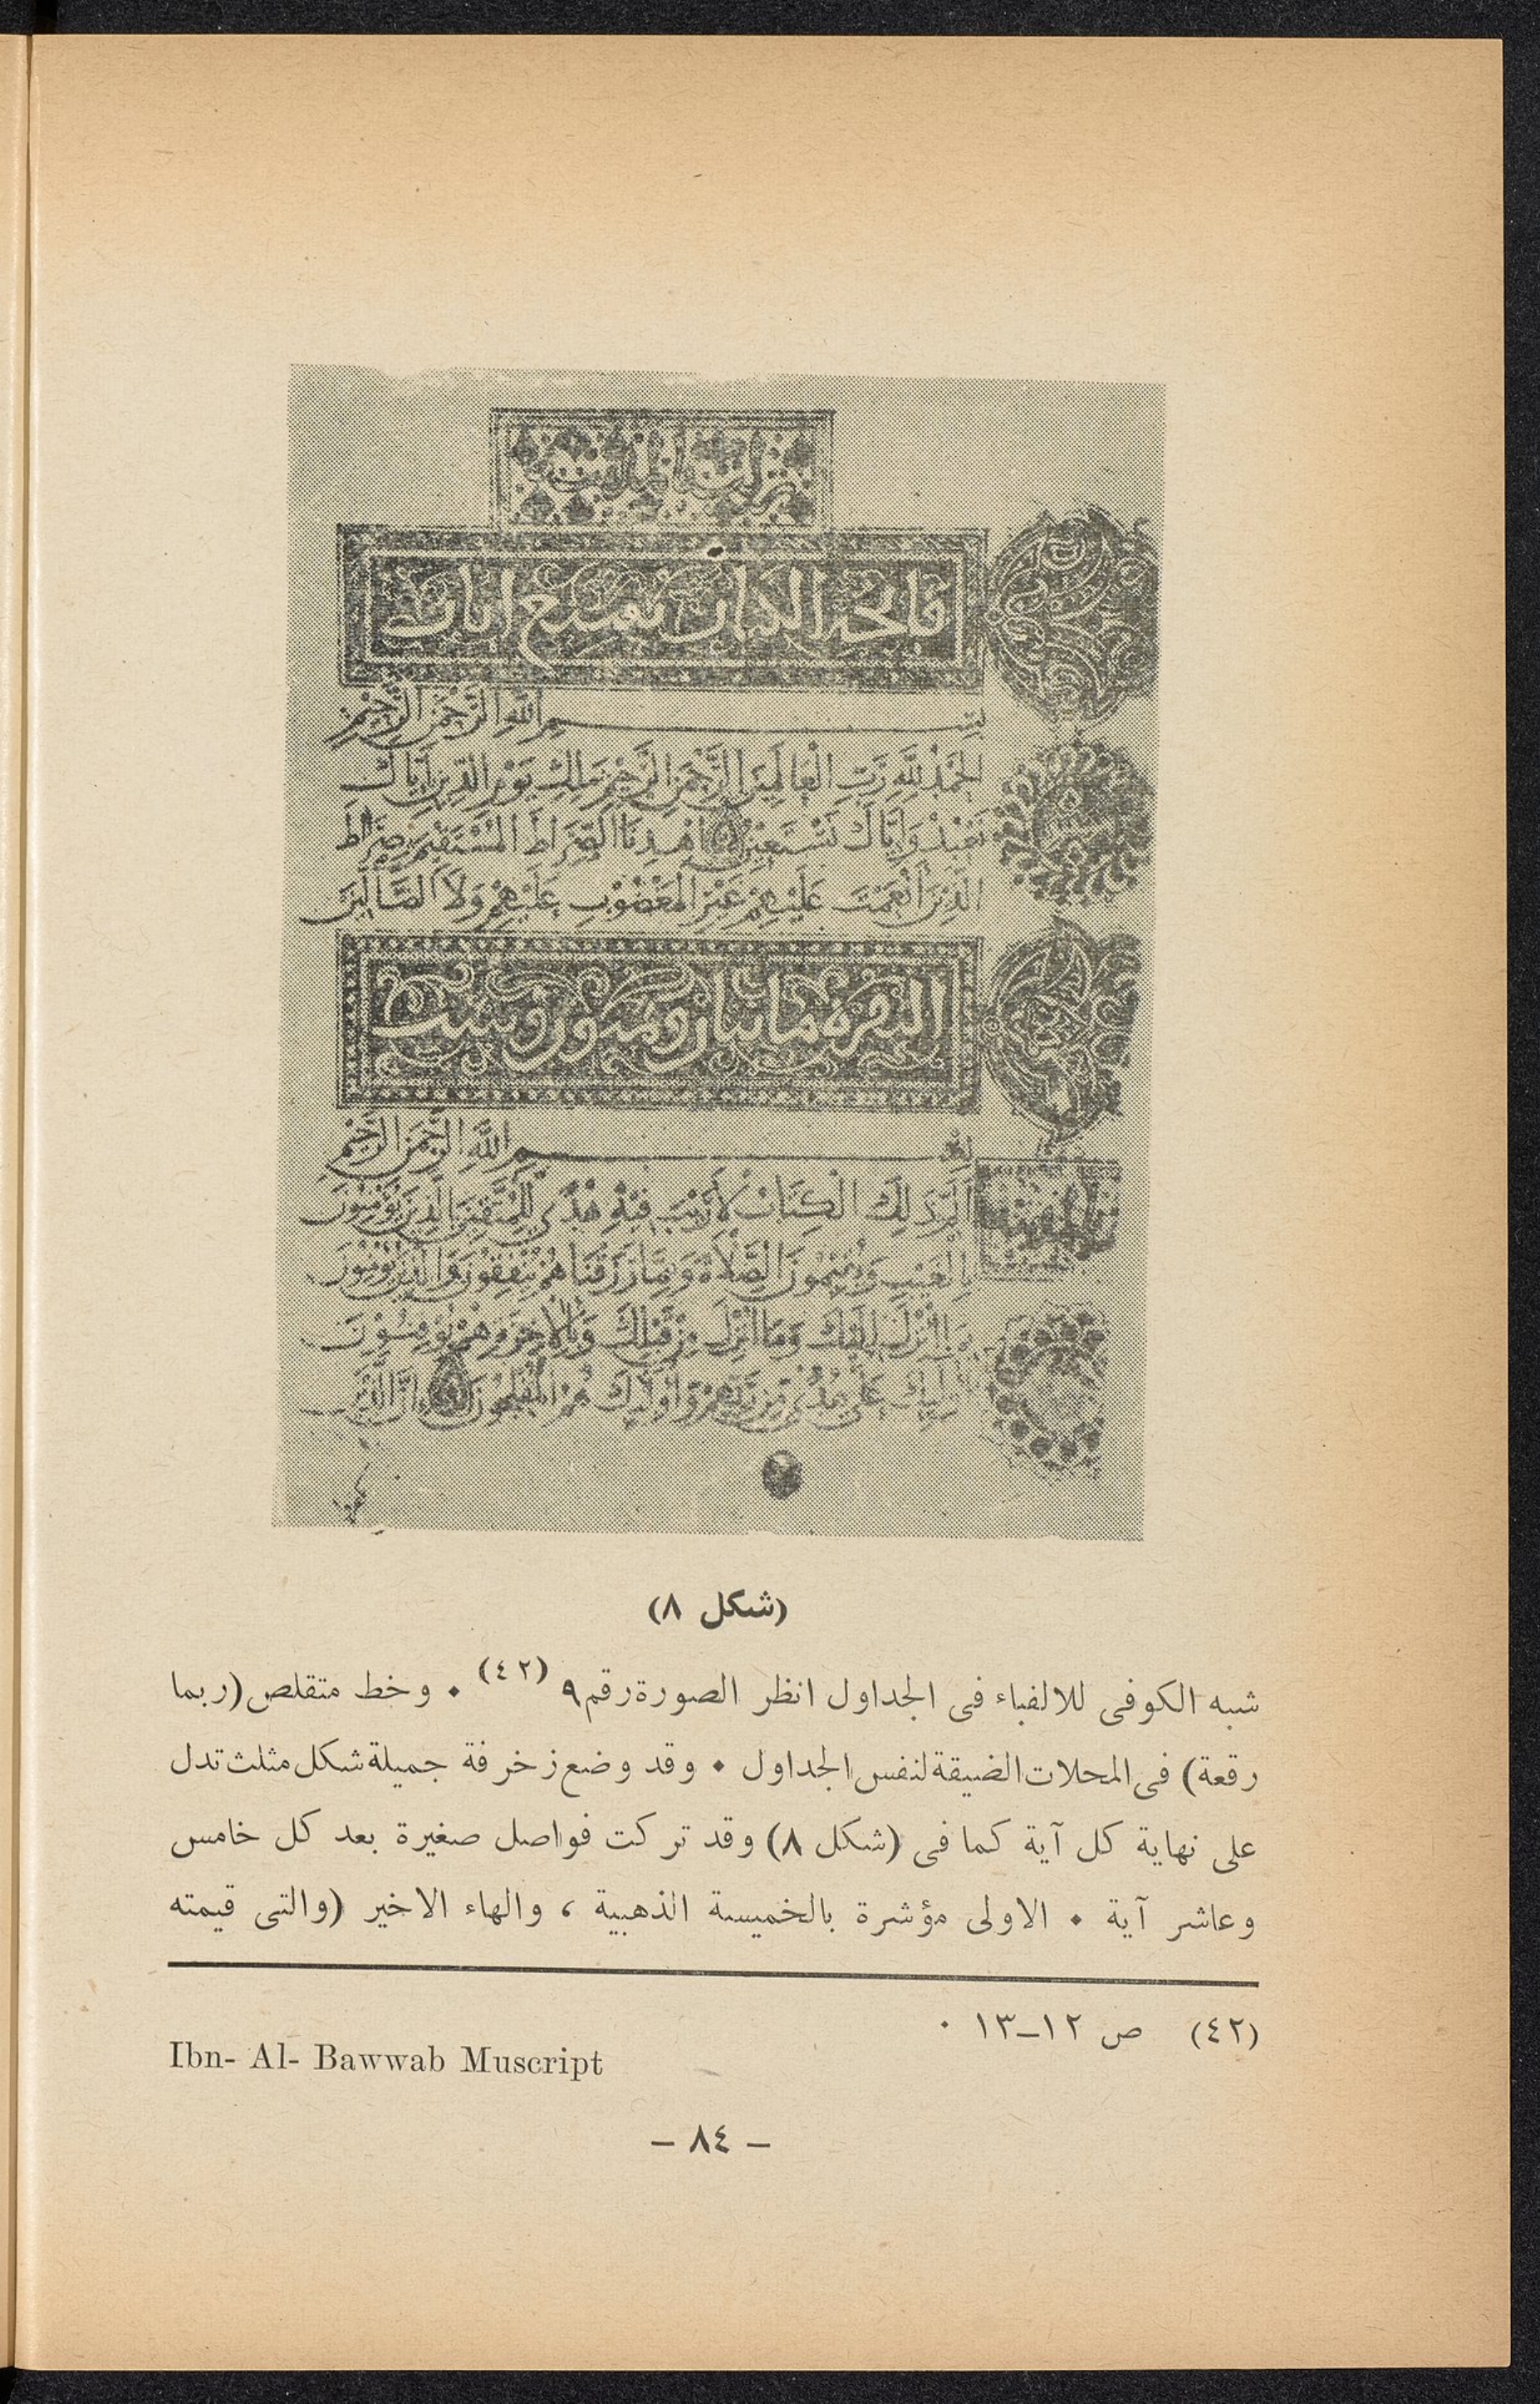 فاتحة الكتاب سبع ايات
بسم الله الرحمن الرحيم
الحمد لله رب العالمين الرحمن الرحيم ملك يوم الدين اياك
نعبد واياك نستعين اهدنا الصراط المستقيم صراط
الذين انعمت عليهم غير المغضوب عليهم ولا الضالين
البقرة مايتان وثمنون وست
بسم الله الرحمن الرحيم
الم ذلك الكتاب لا ريب فيه هدى للمتقين الذين يؤمنون
بالغيب ويقيمون الصلاة ومما رزقناهم ينفقون والذين يؤمنون
بما انزل اليك وما انزل من قبلك وبالاخرة هم يوقنون
اوليك على هدى من ربهم واوليك هم المفلحون ان الذين
(شكل ٨)
شبه الكوفى للالفباء فى الجداول انظر الصورة رقم ٩ (٤٢) ٠ وخط متقلص (ربما
رقعة) فى المحلات الضيقة لنفس الجداول ٠ وقد وضع زخرفة جميلة شكل مثلث تدل
على نهاية كل آية كما فى (شكل ٨) وقد تركت فواصل صغيرة بعد كل خامس
وعاشر آية ٠ الاولى مؤشرة بالخميسة الذهبية ، والهاء الاخير (والتى قيمته
(٤٢) ص ١٢–١٣ ٠
Ibn- Al- Bawwab Muscript
– ٨٤ –